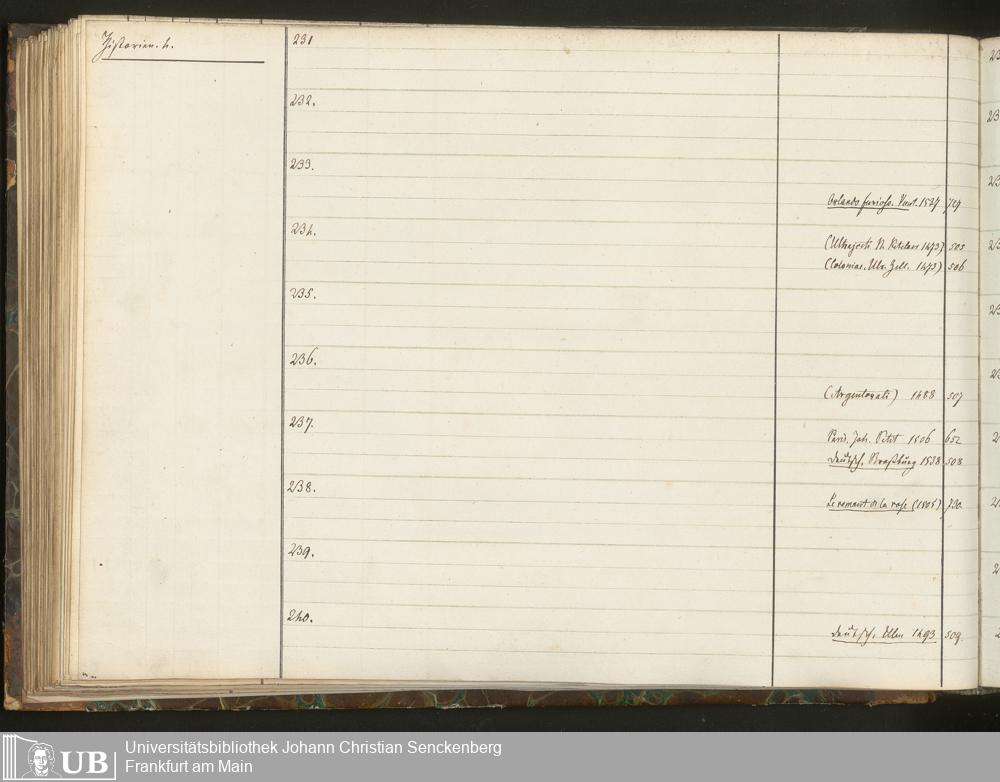 Historien. 4.
231
232.
233.
Orlando furioso. Vent. 1539 729
234.
(Ultrajecti N. Ketelaer 1473) 505
(Coloniae, Ulr. Zell. 1473) 506
235.
236.
(Argentorati) 1488 507
237.
Paris. Joh. Petit 1506 652
deutsch, Straßburg 1538 508
238.
Le romant de la rose (1505) 730.
239.
240.
deutsch, Ulm 1493 509
23
23
23
23
23
23
2
2
2
2
UB
Universitätsbibliothek Johann Christian Senckenberg
Frankfurt am Main